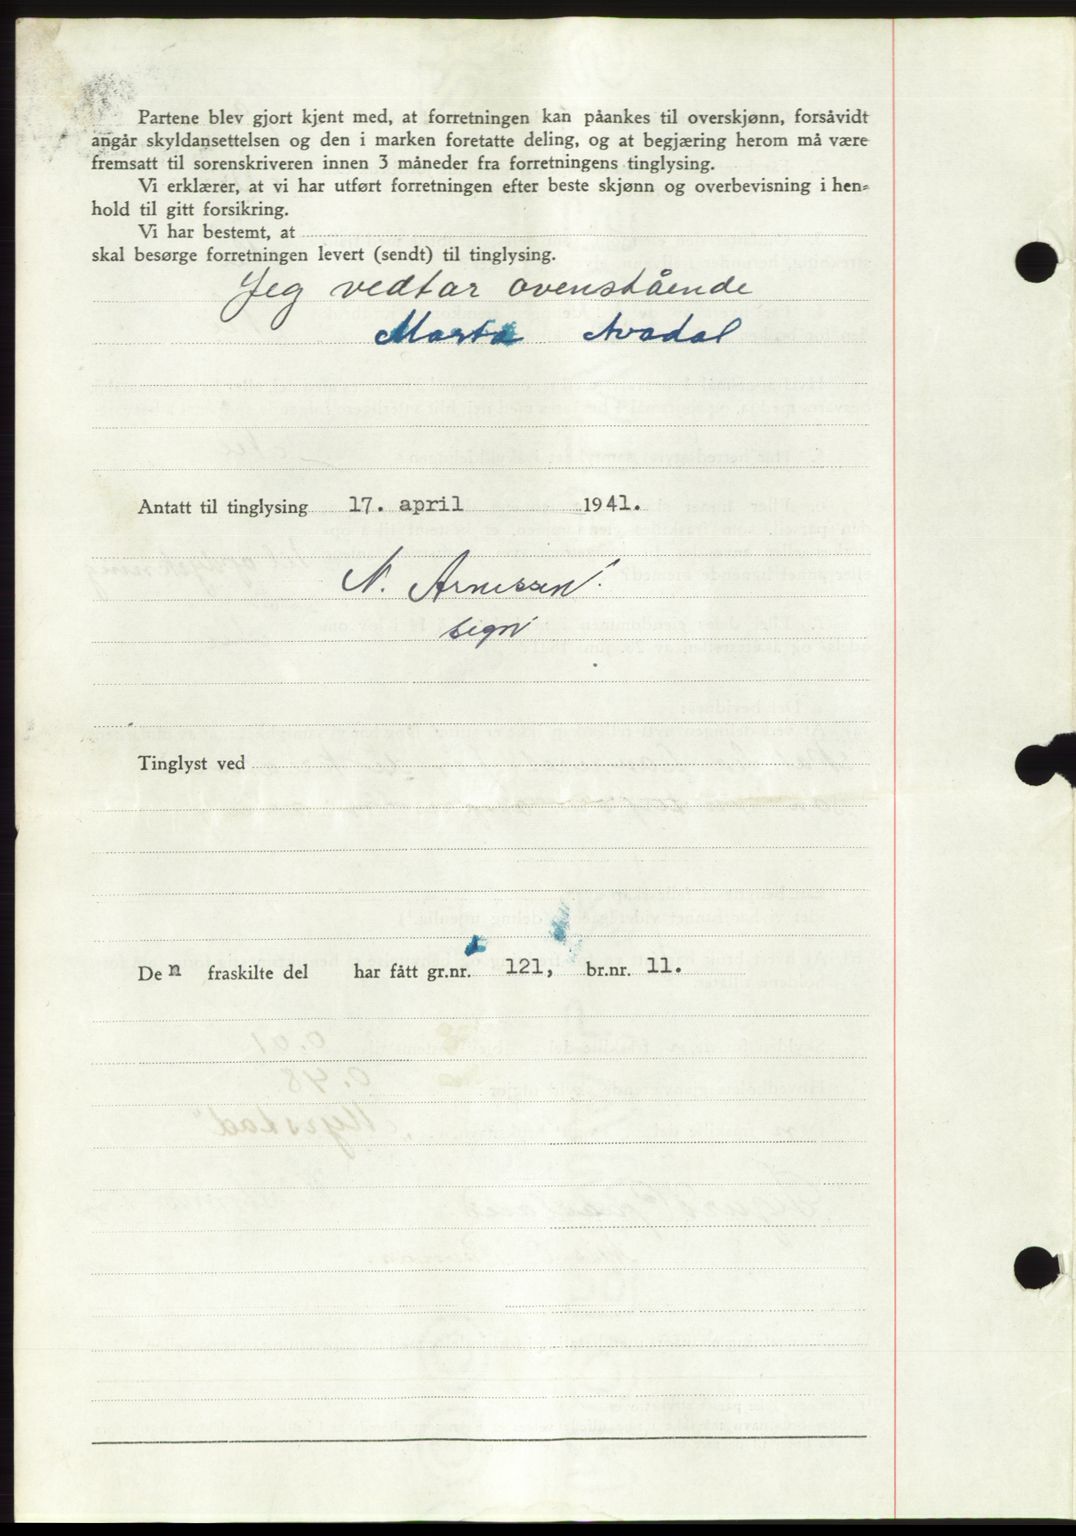 Partene blev gjort kjent med, at forretningen kan påankes til overskjønn, forsåvidt
angår skyldansettelsen og den i marken foretatte deling, og at begjæring herom må være
fremsatt til sorenskriveren innen 3 måneder fra forretningens tinglysing.
Vi erklærer, at vi har utført forretningen efter beste skjønn og overbevisning i hen-
hold til gitt forsikring.
Vi har bestemt, at
skal besørge forretningen levert (sendt) til tinglysing.
Jeg vedtar ovenstående
Marta Avadal
Antatt til tinglysing 17. april 1941.
N. Arnesen
sign
Tinglyst ved
Den fraskilte del har fått gr.nr. 121, br.nr. 11.